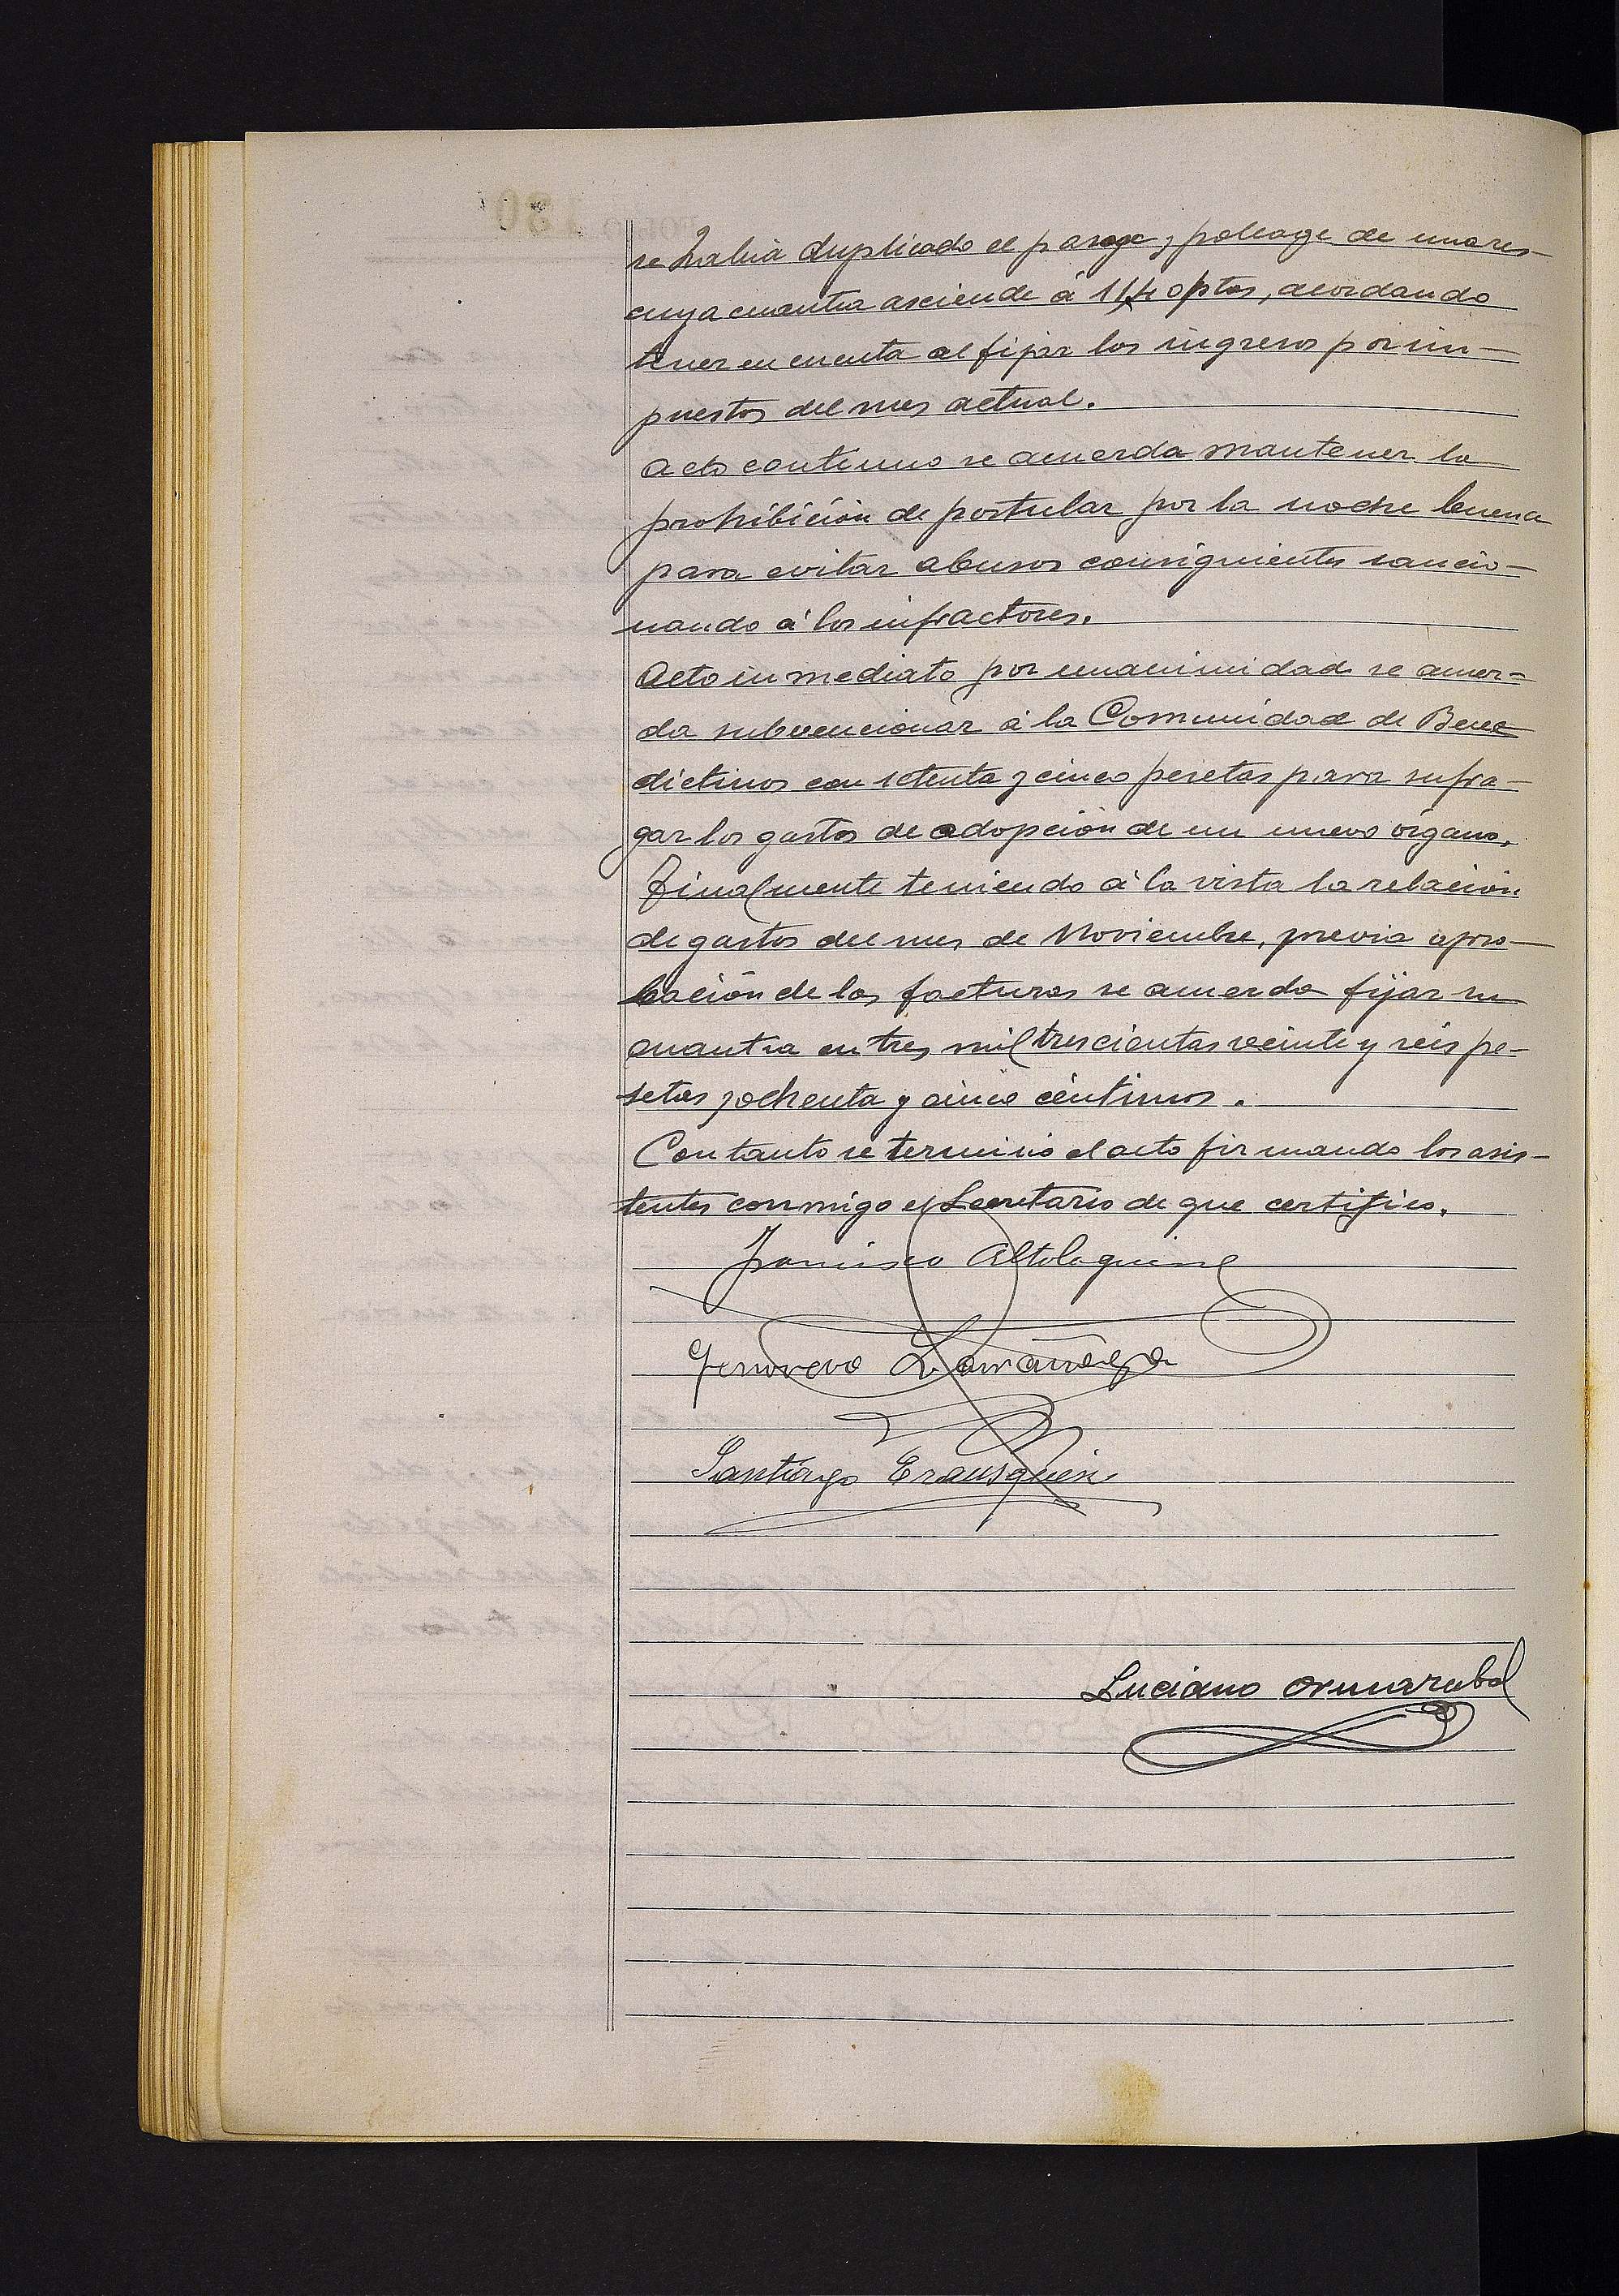 se había duplicado el pasage y poleage de una res
cuya cuantia asciende á 11,40 ptas, acordando
tener en cuenta al fijar los ingresos por im-
puestos del mes actual.
Acto continuo se acuerda mantener la
prohibición de postular por la noche buena
para evitar abusos consiguientes sancio-
nando á los infractores.
Acto inmediato por unanimidad se acuer-
da subvencionar á la Comunidad de Bene
dictinos con setenta y cinco pesetas para sufra-
gar los gastos de adopción de un nuevo órgano.
Finalmente teniendo á la vista la relación
de gastos del mes de Noviembre, previa apro-
bación de las facturas se acuerda fijar su
cuantia en tres mil trescientas veinte y seis pe-
setas y ochenta y cinco céntimos.
Con tanto se terminó el acto firmando los asis-
tentes conmigo el Secretario de que certifico.
Francisco Altolaguirre
Genoveva Larrañaga
Santiago Erausquin
Luciano Ormazabal